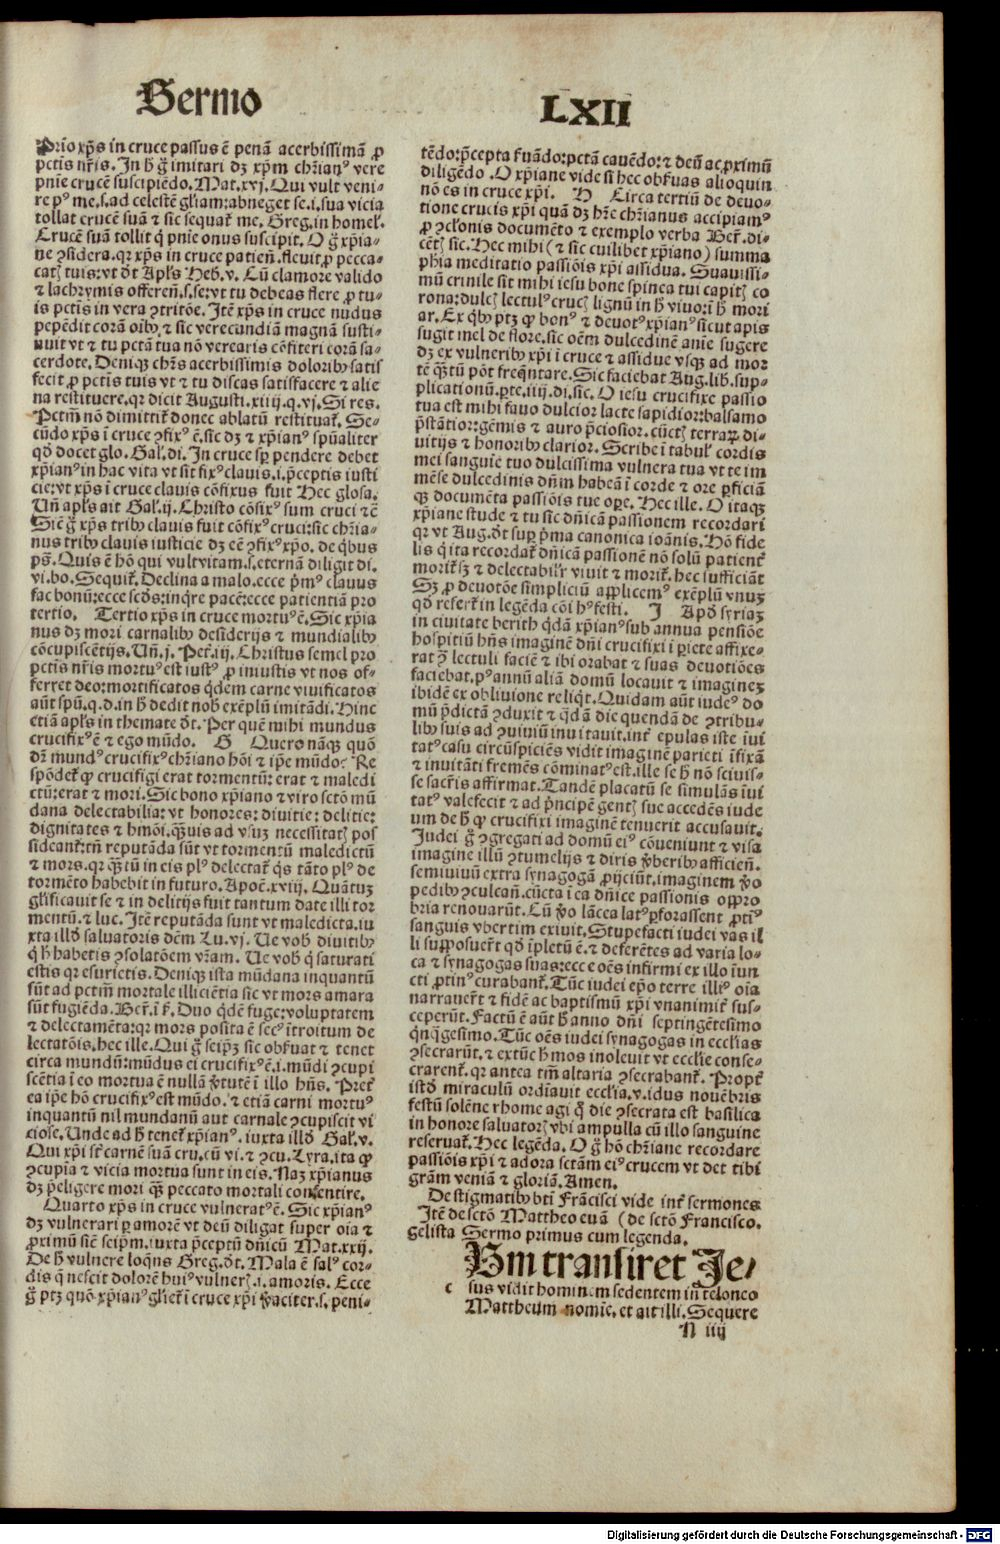 Sermo
LXII
Prĩo xp̃s in cruce passus ẽ penã acerbissimã ꝓ
pctis nr̃is. In h̾ g̾ imitari dꝫ xp̃m chr̃ianꝰ vere
pnĩe crucẽ suscipiẽdo. Mat. xvj. Qui vult veni⸗
re pꝰ me. s. ad celestẽ gl̃iam: abneget se. i. sua vicia
tollat crucẽ suã ⁊ sic sequat̾ me. Greg. in homel̾.
Crucẽ suã tollit q̾ pnĩe onus suscipit. O g̾ xp̃ia⸗
ne ꝯsidera. qꝛ xp̃s in cruce patien̄. fleuit ꝓ pecca⸗
catꝭ tuis: vt dt̄ Apl̃s Heb̾. v. Cũ clamore valido
⁊ lachrymis offeren̄. s. se: vt tu debeas flere ꝓ tu⸗
is pctis in vera ꝯtritõe. Itẽ xp̃s in cruce nudus
pepẽdit corã oĩbꝰ ⁊ sic verecundiã magnã susti⸗
nuit vt ⁊ tu pctã tua nõ verearis cõfiteri corã sa⸗
cerdote. Deniqꝫ chr̃s acerbissimis doloribꝰ satis
fecit ꝓ pctis tuis vt ⁊ tu discas satisfacere ⁊ alie
na restituere. qꝛ dicit Augusti. xiiij. q. vj. Si res.
Pctm̃ nõ dimittit̾ donec ablatũ restituat̾. Se⸗
cũdo xp̃s ĩ cruce ꝯfixꝰ ẽ. sic dꝫ ⁊ xp̃ianꝰ sp̃ualiter
qd̾ docet glo. Gal̾. di. In cruce sp̱ pendere debet
xp̃ianꝰ in hac vita vt sit fixꝰ clauis. i. p̃ceptis iusti
cie: vt xp̃s ĩ cruce clauis cõfixus fuit Hec glosa.
Un̄ apl̃s ait Gal̾. ij. Christo cõfixꝰ sum cruci ⁊c̃
Sic̃ g̾ xp̃s tribꝰ clauis fuit cõfixꝰ cruci: sic chr̃ia⸗
nus tribꝰ clauis iusticie dꝫ eẽ ꝯfixꝰ xp̃o. de q̾bus
ps̃. Quis ẽ hõ qui vult vitam. s. eternã diligit di.
vi. bo. Sequit̾. Declina a malo. ecce p̾mꝰ clauus
fac bonũ: ecce scd̃s: inq̾re pacẽ: ecce patientiã pro
tertio. Tertio xp̃s in cruce mortuꝰ ẽ. Sic xp̃ia
nus dꝫ mori carnalibꝰ desiderijs ⁊ mundialibꝰ
cõcupiscẽtijs. Un̄. j. Pet̾. iij. Christus semel pro
pctis nr̃is mortuꝰ est iustꝰ ꝓ iniustis vt nos of⸗
ferret deo: mortificatos q̾dem carne viuificatos
aũt spũ. q. d. in h̾ dedit nob̾ exẽplũ imitãdi. Hinc
etiã apl̃s in themate dt̄. Per quẽ mihi mundus
crucifixꝰ ẽ ⁊ ego mũdo. G Quero nãqꝫ quõ
dr̃ mundꝰ crucifixꝰ chr̃iano hõi ⁊ ip̃e mũdo? Re
spõdet̾ ꝙ crucifigi erat tormentũ: erat ⁊ maledi
ctũ: erat ⁊ mori. Sic bono xp̃iano ⁊ viro sctõ mũ
dana delectabilia: vt honores: diuitie: delitie:
dignitates ⁊ hmõi. qꝫuis ad vsuꝫ necessitatꝭ pos
sideant: tñ reputãda sũt vt tormentũ maledictũ
⁊ mors. qꝛ qꝫtũ in eis plꝰ delectat̾ q̾s tãto plꝰ de
tormẽto habebit in futuro. Apoc̃. xviij. Quãtuꝫ
gl̃ificauit se ⁊ in delitijs fuit tantum date illi tor
mentũ. ⁊ luc. Itẽ reputãda sunt vt maledicta. iu
xta illd̾ saluatoris dẽm Lu. vj. Ue vob̾ diuitibꝰ
q̾ h̾ habetis ꝯsolatõem vr̃am. Ue vob̾ q̾ saturati
estis qꝛ esurietis. Deniqꝫ ista mũdana inquantũ
sũt ad pctm̃ mortale illiciẽtia sic vt mors amara
sũt fugiẽda. Ber̾. i ẽ. Duo q̾dẽ fuge: voluptatem
⁊ delectamẽta: qꝛ mors posita ẽ secꝰ ĩtroitum de
lectatõis. hec ille. Qui g̾ seip̃ꝫ sic obs̾uat ⁊ tenet
circa mundũ: mũdus ei crucifixꝰ ẽ. i. mũdi ꝯcupi
scẽtia ĩ eo mortua ẽ nullã v̾tutẽ ĩ illo hñs. Pret̾
ea ip̃e hõ crucifixꝰ est mũdo. ⁊ etiã carni mortuꝰ
inquantũ nil mundanũ aut carnale ꝯcupiscit vi
ciose. Unde ad h̾ tenet̾ xp̃ianꝰ. iuxta illd̾ Gal̾. v.
Qui xp̃i st̾ carnẽ suã cru. cũ vi. ⁊ ꝯcu. Lyra. ita ꝙ
ꝯcupĩa ⁊ vicia mortua sunt in eis. Naꝫ xp̃ianus
dꝫ p̃eligere mori qꝫ peccato mortali consentire.
Quarto xp̃s in cruce vulneratꝰ ẽ. Sic xp̃ianꝰ
dꝫ vulnerari ꝑ amorẽ vt deũ diligat super oĩa ⁊
ꝓximũ sic̃ seip̃m. iuxta p̃ceptũ dñicũ Mat. xxij.
De h̾ vulnere loq̾ns Greg. dt̄. Mala ẽ salꝰ cor⸗
dis q̾ nescit dolorẽ huiꝰ vulnerꝭ. i. amoris. Ecce
g̾ ptꝫ quõ xp̃ianꝰ gl̃iet̾ ĩ cruce xp̃i v̾aciter. s. peni⸗
tẽdo: p̃cepta s̾uãdo: pctã cauẽdo: ⁊ deũ ac ꝓximũ
diligẽdo. O xp̃iane vide si hec obs̾uas alioquin
nõ es in cruce xp̃i. H Circa tertiũ de deuo⸗
tione crucis xp̃i quã dꝫ hr̃e chr̃ianus accipiamꝰ
ꝓ ꝯcl̃onis documẽto ⁊ exemplo verba Ber̾. di⸗
cẽtꝭ sic. Hec mihi (⁊ sic cuilibet xp̃iano) summa
ph̃ia meditatio passiõis xp̃i assidua. Suauissi⸗
mũ crinile sit mihi iesu bone spinea tui capitꝭ co
rona: dulcꝭ lectulꝰ crucꝭ lignũ in h̾ viuo: ĩ h̾ mori
ar. Ex q̾bꝰ ptꝫ ꝙ bonꝰ ⁊ deuotꝰ xp̃ianꝰ sicut apis
sugit mel de flore. sic oẽm dulcedinẽ anĩe sugere
dꝫ ex vulneribꝰ xp̃i ĩ cruce ⁊ assidue vsqꝫ ad mor
tẽ qꝫtũ põt freq̃ntare. Sic faciebat Aug. lib̾. sup⸗
plicationũ. ꝑte. iiij. di. sic. O iesu crucifixe passio
tua est mihi fauo dulcior lacte sapidior: balsamo
p̃stãtior: gẽmis ⁊ auro p̃ciosior. cũctꝭ terraꝝ di⸗
uitijs ⁊ honoribꝰ clarior. Scribe ĩ tabul̾ cordis
mei sanguĩe tuo dulcissima vulnera tua vt te im
mẽse dulcedinis dñm habeã ĩ corde ⁊ ore ꝑficiã
qꝫ documẽta passiõis tue ope. Hec ille. O itaqꝫ
xp̃iane stude ⁊ tu sic dñicã passionem recordari
qꝛ vt Aug. dt̄ sup̱ p̾ma canonica ioãnis. Hõ fide
lis q̾ ita recordat̾ dñicã passionẽ nõ solũ patient̾
morit̾ sꝫ ⁊ delectabilr̃ viuit ⁊ morit̾. hec sufficiãt
Sꝫ ꝓ deuotõe simpliciũ applicemꝰ exẽplũ vnuꝫ
qd̾ refert̾ in legẽda cõi hꝰ festi. I Apd̾ syriaꝫ
in ciuitate berith q̾dã xp̃ianꝰ sub annua pensiõe
hospitiũ hñs imaginẽ dñi crucifixi ĩ ꝑiete affixe⸗
rat ꝯ̃ lectuli faciẽ ⁊ ibi orabat ⁊ suas deuotiões
faciebat. pꝰ annũ aliã domũ locauit ⁊ imagineꝫ
ibidẽ ex obliuione reliq̾t. Quidam aũt iudeꝰ do
mũ p̃dictã ꝯduxit ⁊ q̾dã die quendã de ꝯtribu⸗
libꝰ suis ad ꝯuiuiũ inuitauit. int̾ epulas iste ĩui
tatꝰ casu circũspiciẽs vidit imaginẽ parieti ĩfixã
⁊ inuitãti fremẽs cõminatꝰ est. ille se h̾ nõ sciuis⸗
se sacr̃is affirmat. Tandẽ placatũ se simulãs ĩui
tatꝰ valefecit ⁊ ad p̾ncipẽ gentꝭ sue accedẽs iude
um de h̾ ꝙ crucifixi imaginẽ tenuerit accusauit.
Judei g̾ ꝯgregati ad domũ eiꝰ cõueniunt ⁊ visa
imagine illũ ꝯtumelijs ⁊ diris v̾beribꝰ afficien̄.
semiuiuũ extra synagogã ꝓijciũt. imaginem v̾o
pedibꝰ ꝯculcan̄. cũcta ĩ ea dñice passionis oppro
bria renouarũt. Cũ v̾o lãcea latꝰ ꝑforassent ꝓtiꝰ
sanguis vbertim exiuit. Stupefacti iudei vas il
li supposuer̃t qd̾ ĩpletũ ẽ. ⁊ deferẽtes ad varia lo⸗
ca ⁊ synagogas suas: ecce oẽs infirmi ex illo ĩun
cti ꝓtinꝰ curabant̾. Tũc iudei ep̃o terre illiꝰ oĩa
narrauer̃t ⁊ fidẽ ac baptismũ xp̃i vnanimit̾ sus⸗
ceperũt. Factũ ẽ aũt h̾ anno dñi septingẽtesimo
q̾nq̾gesimo. Tũc oẽs iudei synagogas in eccl̃ias
ꝯsecrarũt. ⁊ extũc h̾ mos inoleuit vt eccl̃ie conse⸗
crarent̾. qꝛ antea tm̃ altaria ꝯsecrabant̾. Propt̾
istd̾ miraculũ ordĩauit eccl̃ia. v. idus nouẽbris
festũ solẽne rhome agi q̾ die ꝯsecrata est basilica
in honore saluatorꝭ vbi ampulla cũ illo sanguine
reseruat̾. Hec legẽda. O g̾ hõ chr̃iane recordare
passiõis xp̃i ⁊ adora sctãm eiꝰ crucem vt det tibi
gr̃am veniã ⁊ gloriã. Amen.
De stigmatibꝰ bt̃i Frãcisci vide int̾ sermones
Itẽ de sctõ Mattheo euã (de sctõ Francisco.
gelista Sermo primus cum legenda.
Um transiret Je⸗
c sus vidit hominem sedentem in teloneo
Mattheum nomĩe. et ait illi. Sequere
N iiij
Digitalisierung gefördert durch die Deutsche Forschungsgemeinschaft - DFG